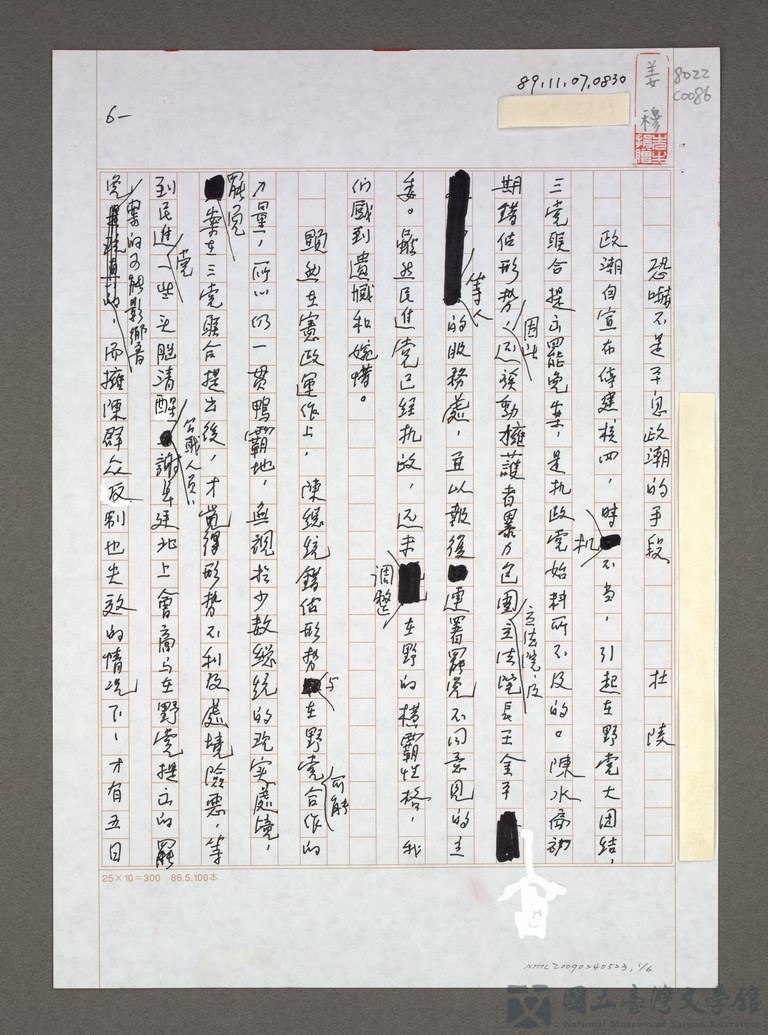 89.11.07.0830
姜穆
8022
C0086
6—
恐嚇不是平息政潮的手段 杜陵
政潮自宣布停建核四,時机不当,引起在野党大团結,
三党联合提出罷免案,是执政党始料所不及的。陳水扁初
期錯估形勢,因此还發動擁護者暴力包圍立法院及立法院長王金平
等人的服務處,並以報復連署罷免不同意見的立
委。雖然民進党已經执政,还未調整在野的横霸性格,我
们感到遺憾和惋惜。
顯然在憲政運作上,陳總統錯估形勢与在野党合作的可能
力量,所以仍一贯鴨霸地,無視於少数總統的现实處境,
罷免案在三党联合提出後,才覚得形势不利及處境險惡,等
到民進党一些头腦清醒公職人員、謝長廷北上會商与在野党提出的罷
免案的可能影響,而擁陳群众反制也失效的情况下,才有五日
25×10=300 86.5.100本
NMLT20090240523, 1/6
國立臺灣文學館
National Museum of Taiwan Literature